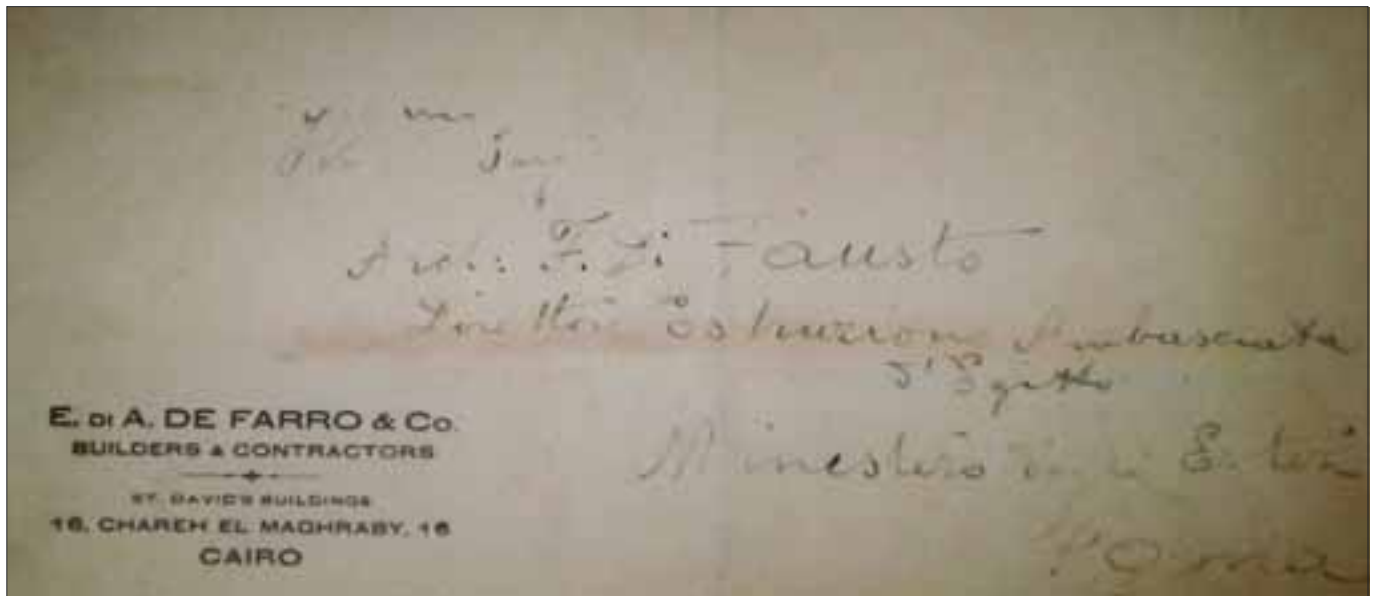 Arch.: F. Di Fausto
Costruzione Ambasciata
d'Egitto
Ministero Esteri
Roma
E. DI A. DE FARRO & Co.
BUILDERS & CONTRACTORS
ST. DAVID'S BUILDINGS
16, CHAREH EL MAGHRABY, 16
CAIRO